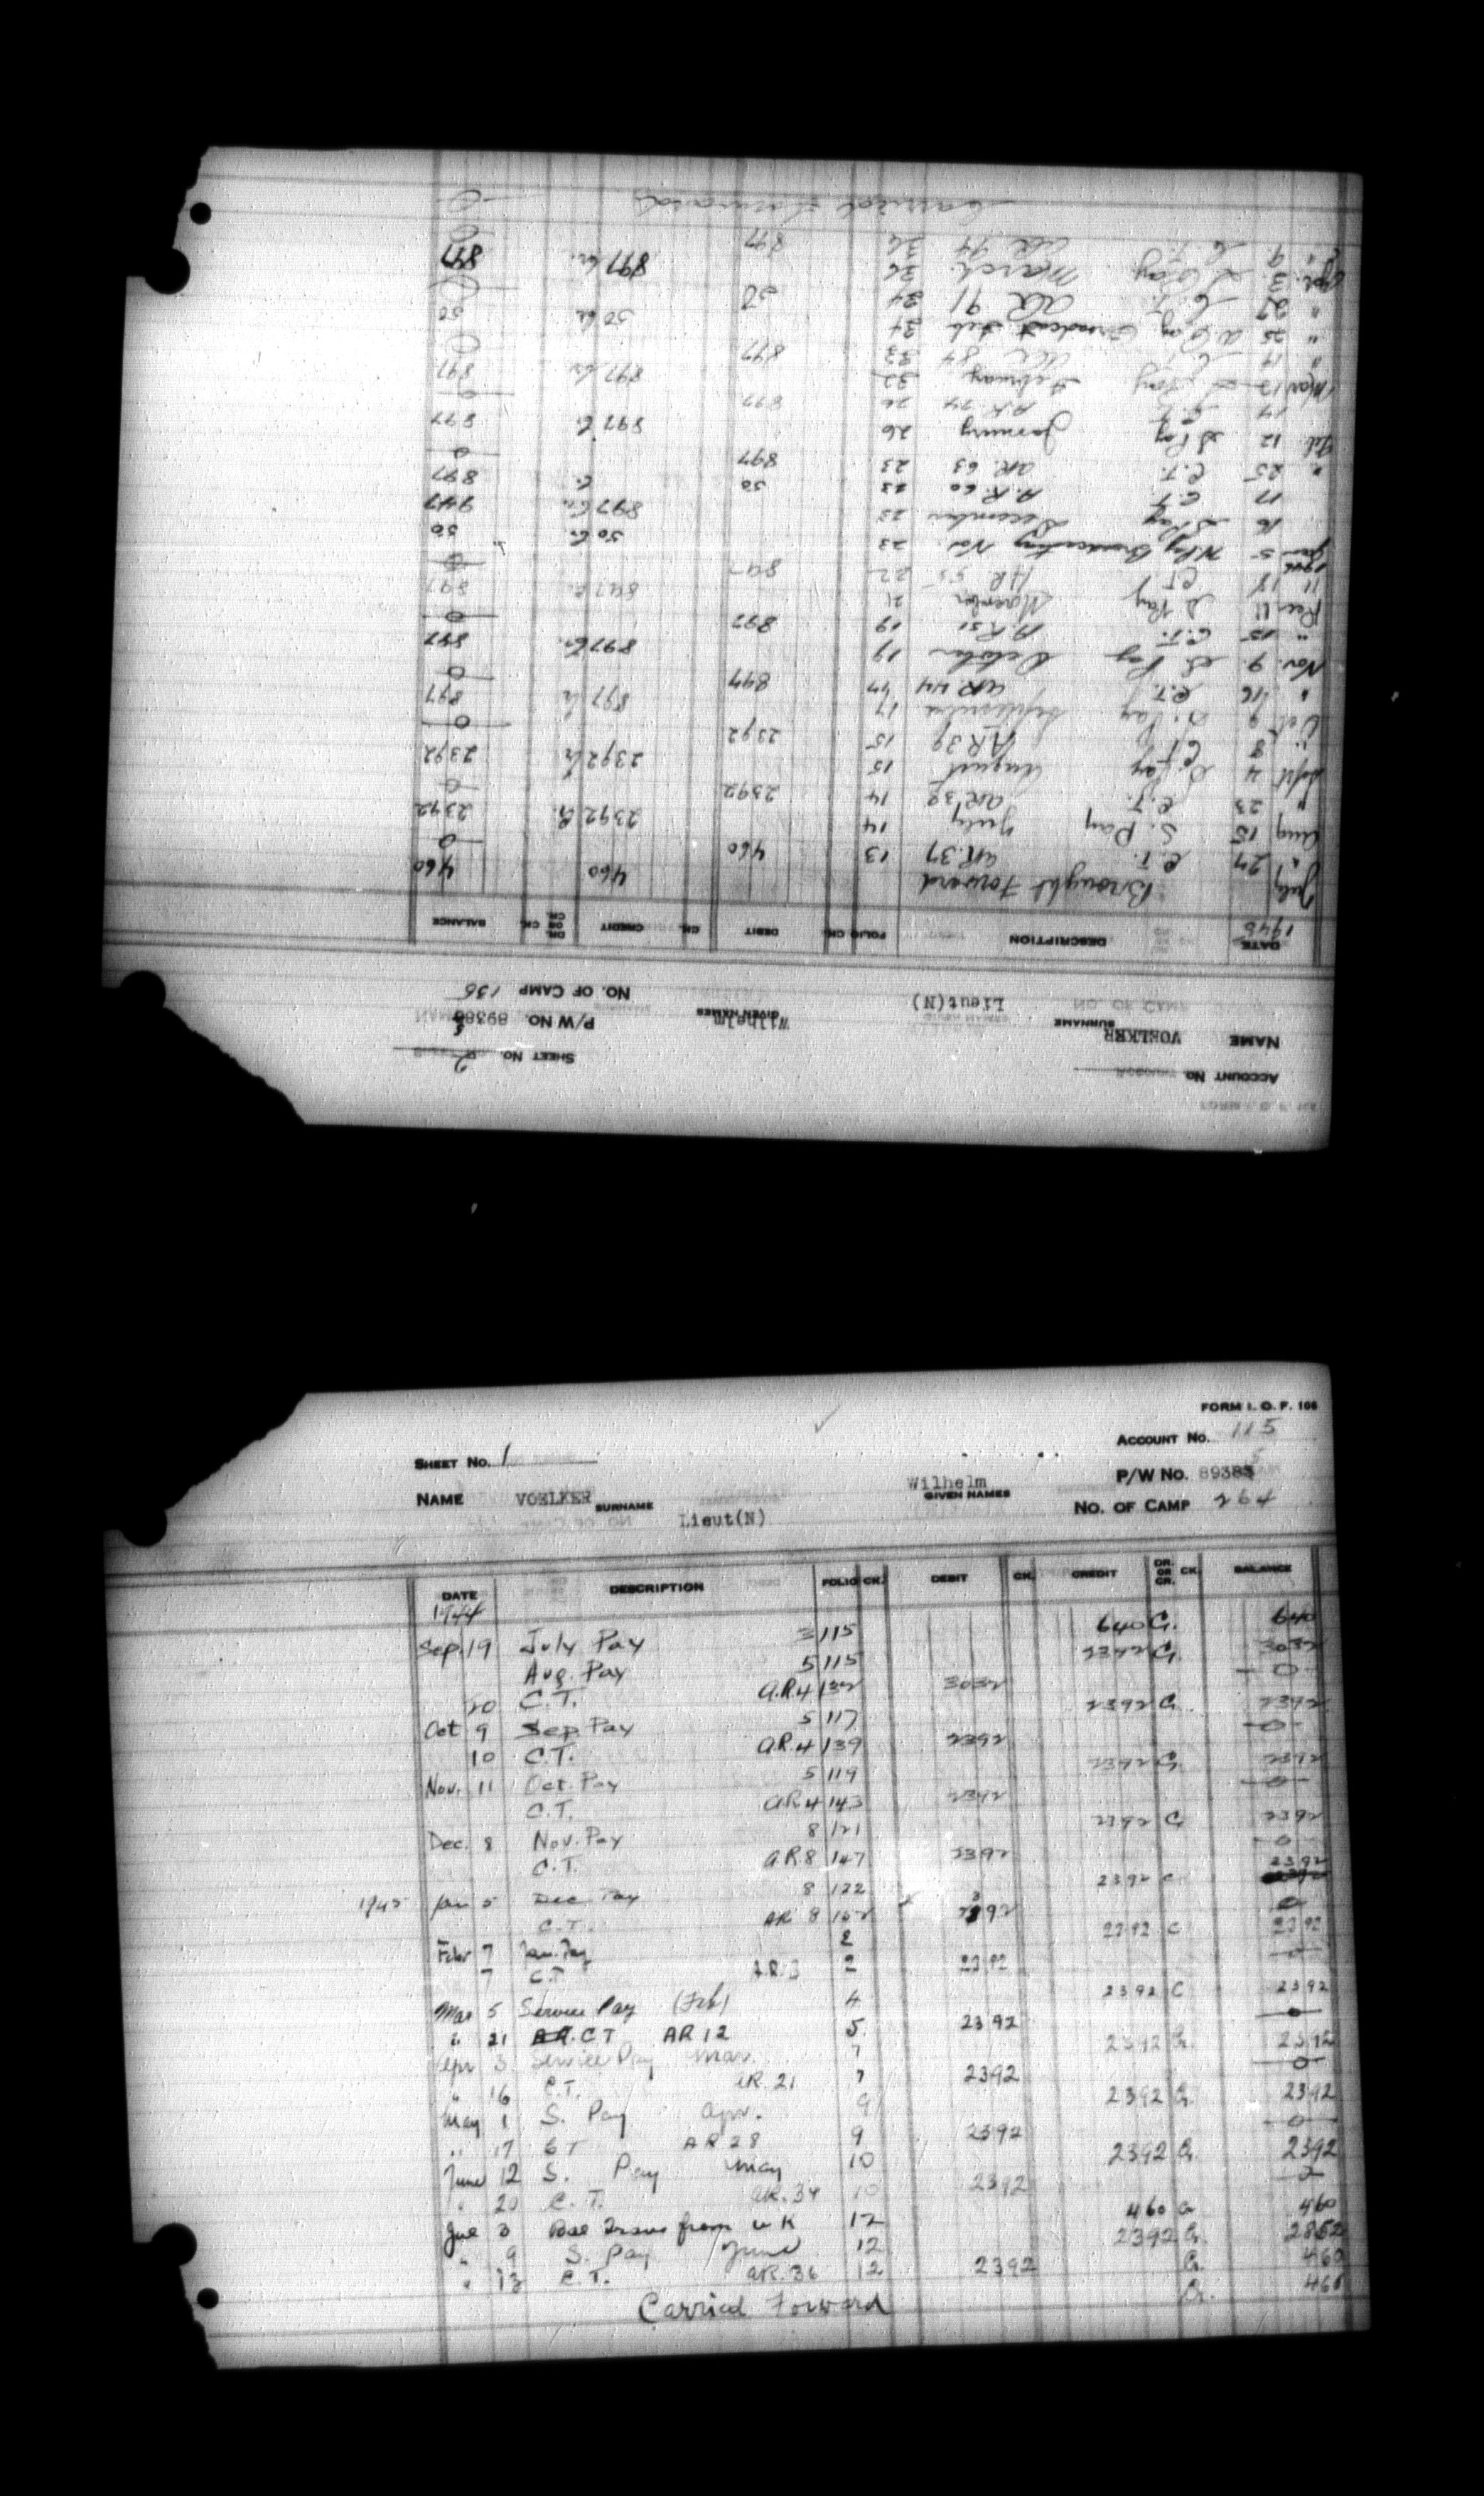 FORM I. O. F. 106
ACCOUNT NO. 115
SHEET NO. 1
P/W NO. 89385
NAME VOELKER SURNAME Wilhelm GIVEN NAMES
Lieut(N)
NO. OF CAMP 264
DATE DESCRIPTION FOLIO CK. DEBIT CK. CREDIT DR. OR CR. CK. BALANCE
1944
Sep. 19 July Pay 3 115 640 Cr. 640
Aug. Pay 5 115 2392 Cr. 3032
20 C.T. A.R.4 132 3032 -0-
Oct 9 Sep. Pay 5 117 2392 Cr 2392
10 C.T. A.R.4 139 2392 -0-
Nov. 11 Oct. Pay 5 119 2392 Cr. 2392
C.T. A.R.4 143 2392 -0-
Dec. 8 Nov. Pay 8 121 2392 Cr 2392
C.T. A.R.8 147 2392 -0-
1945 Jan 5 Dec Pay 8 122 2392 C 2392
C.T. AR 8 152 2392 0
Febr 7 Jan. Pay 2 2392 C 2392
7 C.T. A.R.3 2 2392 0
Mar 5 Service Pay (Feb) 4 2392 C 2392
" 21 C T AR 12 5 2392 0
Apr 3 Service Pay Mar. 7 2392 Cr. 2392
" 16 C.T. AR. 21 7 2392 0
May 1 S. Pay Apr. 9 2392 Cr. 2392
" 17 C T AR 28 9 2392 0
June 12 S. Pay May 10 2392 Cr. 2392
" 20 C. T. AR. 34 10 2392 0
3 Bal Trans from U K 12 460 Cr 460
" 9 S. Pay June 12 2392 Cr. 2852
" 13 C.T. AR. 36 12 2392 Cr. 460
Carried Forward Cr. 460
FORM I. O. F. 106
ACCOUNT NO.
SHEET NO. 2
NAME VOELKER SURNAME Wilhelm GIVEN NAMES
Lieut(N)
P/W NO. 89385
NO. OF CAMP 135
DATE DESCRIPTION FOLIO CK. DEBIT CK. CREDIT DR. OR CR. CK. BALANCE
1945
Brought Forward 460 460
July 27 C.T. AR.37 13 460 0
Aug 15 S. Pay July 14 2392 Cr. 2392
" 23 C.T. AR 38 14 2392 0
Sept 4 S. Pay August 15 2392 Cr 2392
" 8 CT AR 39 15 2392 0
Oct 9 S. Pay September 17 897 Cr 897
" 16 C.T. AR.44 17 897 0
Nov. 9 S Pay October 19 897 Cr. 897
" 15 C.T. A.R 51 19 897 0
Dec 11 S Pay November 21 897 Cr. 897
" 18 CT AR 55 22 897 0
1946
Jan 5 W Pay Broadcasting Nov. 23 50 Cr. 50
16 S Pay December 23 897 Cr. 947
17 C.T. A.R. 60 23 50 Cr. 897
" 25 C.T. AR. 63 23 897 0
Feb. 12 S Pay January 26 897 Cr 897
14 C.T. A.R. 74 26 897 0
Mar 12 S Pay February 33 897 Cr 897
" 14 C.T. AR 84 33 897 0
" 25 Pay Broadcast Feb 34 50 Cr 50
" 27 C.T. AR 91 34 50 0
Apl. 3 S Pay March. 36 897 Cr. 897
" 9 C.T. AR 94 36 897 0
Carried Forward 0